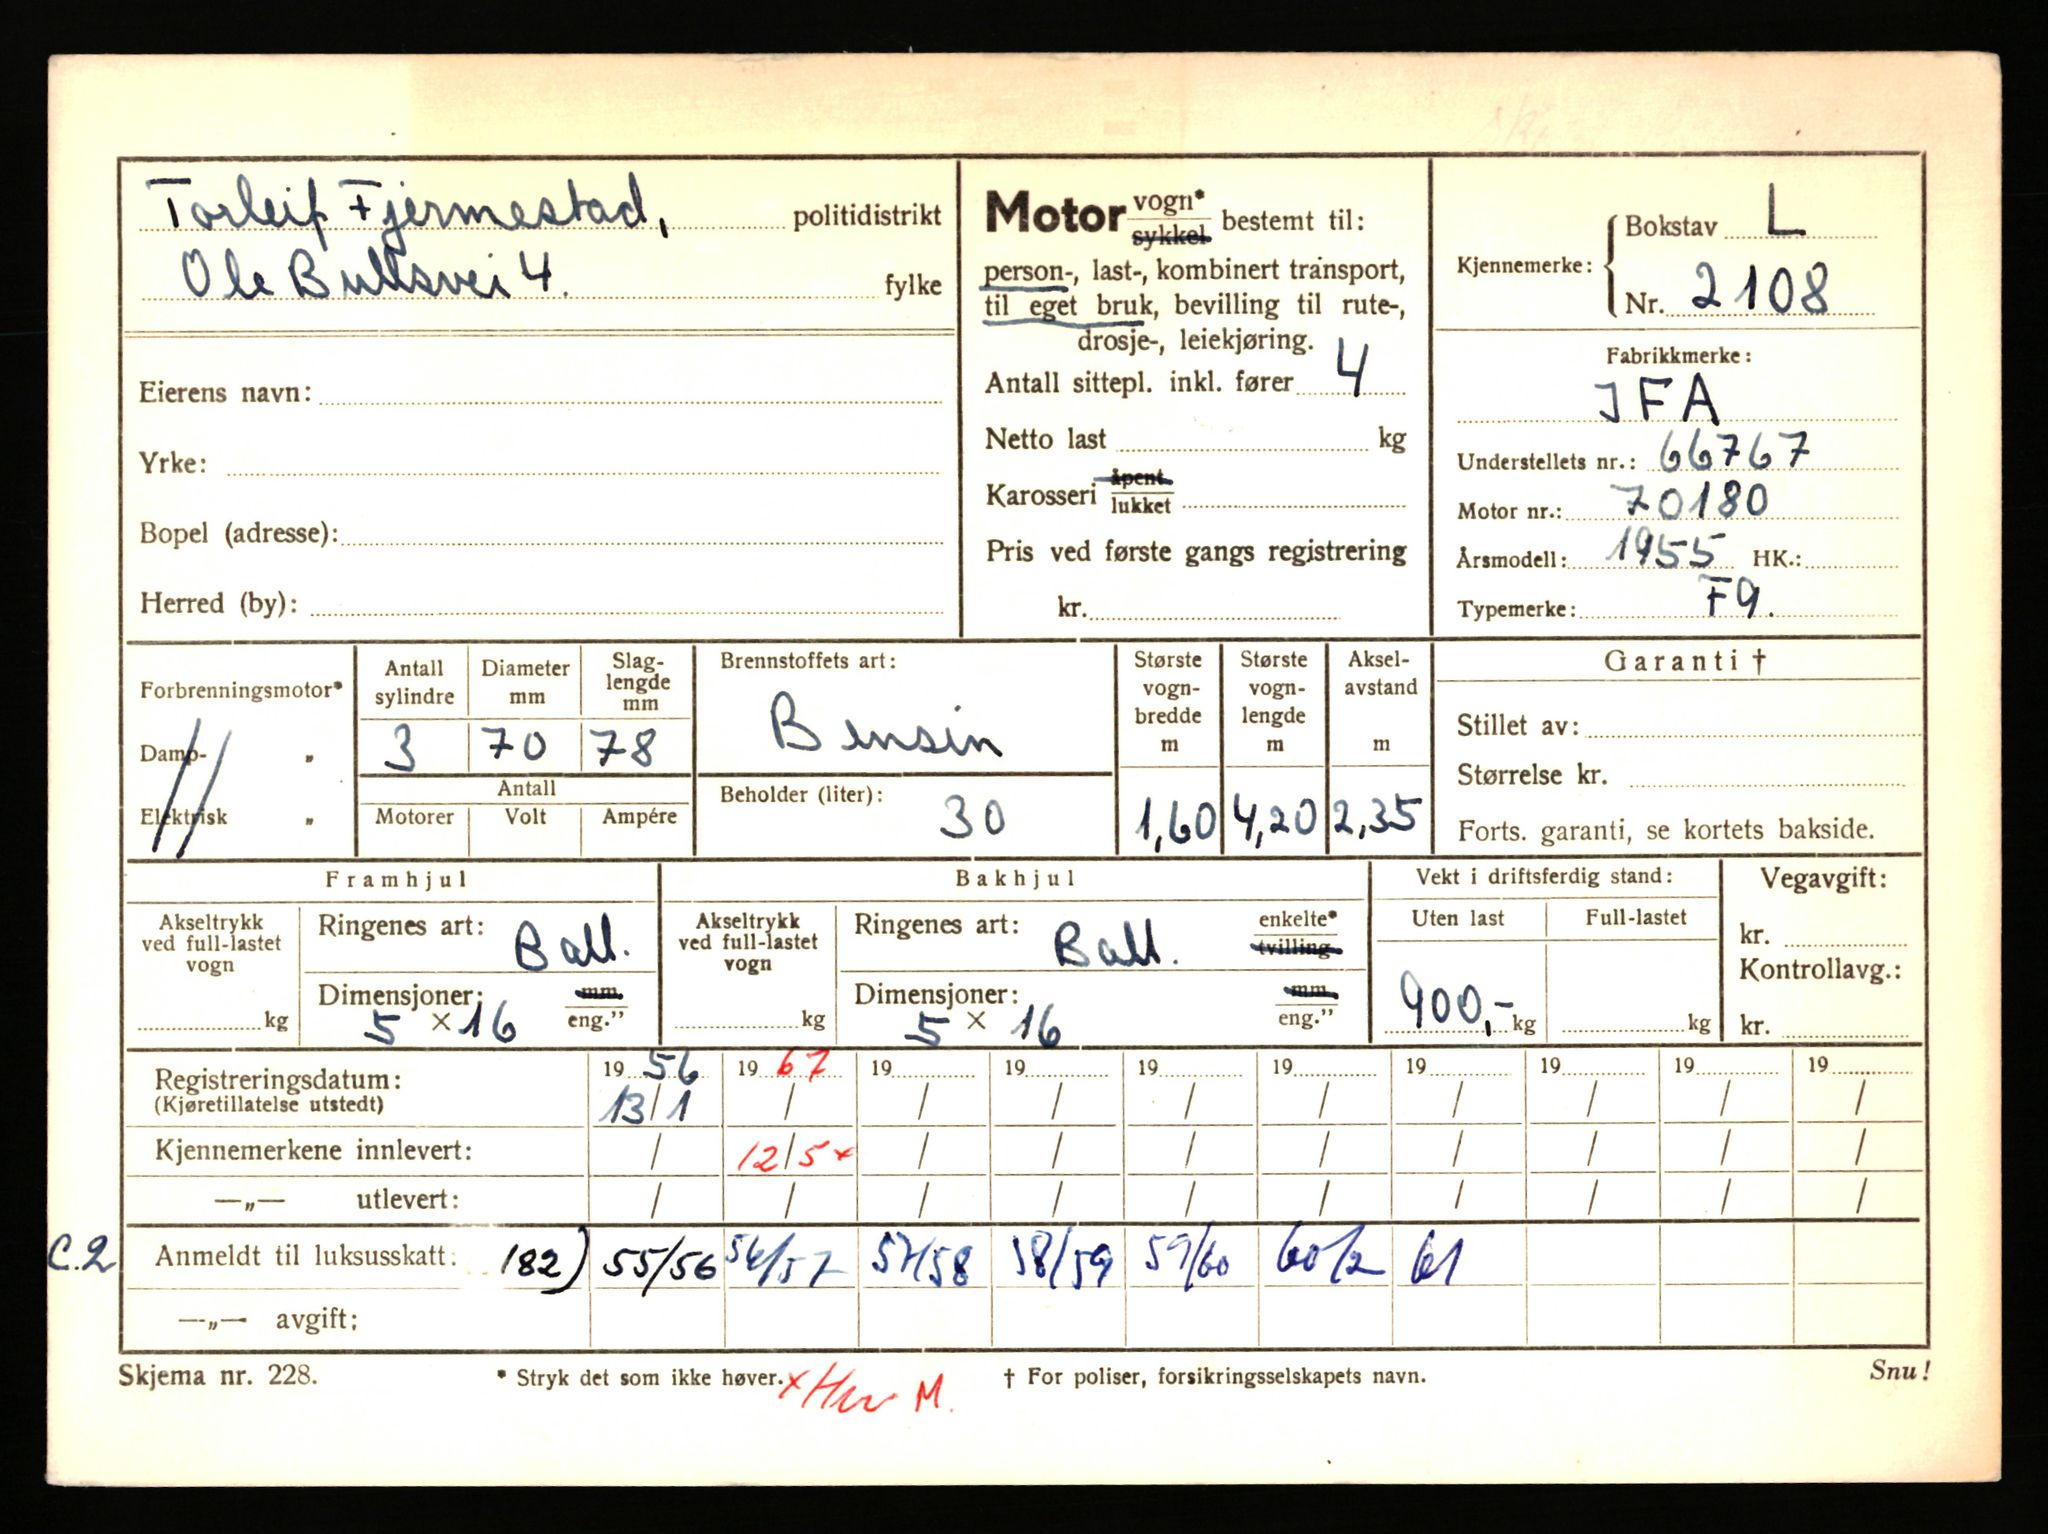 Torleif Fjermestad, politidistrikt
Ole Bullsvei 4. fylke
Eierens navn:
Yrke:
Bopel (adresse):
Herred (by):
Motor vogn* sykkel bestemt til:
person-, last-, kombinert transport,
til eget bruk, bevilling til rute-,
drosje-, leiekjøring.
Antall sittepl. inkl. fører 4
Netto last kg
Karosseri åpent lukket
Pris ved første gangs registrering
kr.
Kjennemerke: Bokstav L
Nr. 2108
Fabrikkmerke:
IFA
Understellets nr.: 66767
Motor nr.: 70180
Årsmodell: 1955 HK.:
Typemerke: F9.
Forbrenningsmotor*
Damp- „
Elektrisk „
Antall sylindre
Diameter mm
Slag-
lengde
mm
3 70 78
Antall
Motorer Volt Ampére
Brennstoffets art:
Bensin
Beholder (liter):
30
Største
vogn-
bredde
m
1,60
Største
vogn-
lengde
m
4,20
Aksel-
avstand
m
2,35
Garanti †
Stillet av:
Størrelse kr.
Forts. garanti, se kortets bakside.
Framhjul
Akseltrykk
ved full-lastet
vogn
kg
Ringenes art: Ball.
Dimensjoner: mm
5 × 16 eng.”
Bakhjul
Akseltrykk
ved full-lastet
vogn
kg
Ringenes art: Ball. enkelte*
tvilling
Dimensjoner: mm
5 × 16 eng.”
Vekt i driftsferdig stand:
Uten last Full-lastet
900,- kg kg
Vegavgift:
kr.
Kontrollavg.:
kr.
Registreringsdatum: 19 56 19 67 19 19 19 19 19 19 19 19
(Kjøretillatelse utstedt) 13/1 / / / / / / / / /
Kjennemerkene innlevert: / 12/5 × / / / / / / / /
—„— utlevert: / / / / / / / / / /
C.2 Anmeldt til luksusskatt: 182) 55/56 56/57 57/58 58/59 59/60 60/2 61
—„— avgift:
Skjema nr. 228. * Stryk det som ikke høver. × † For poliser, forsikringsselskapets navn. Snu!
M.